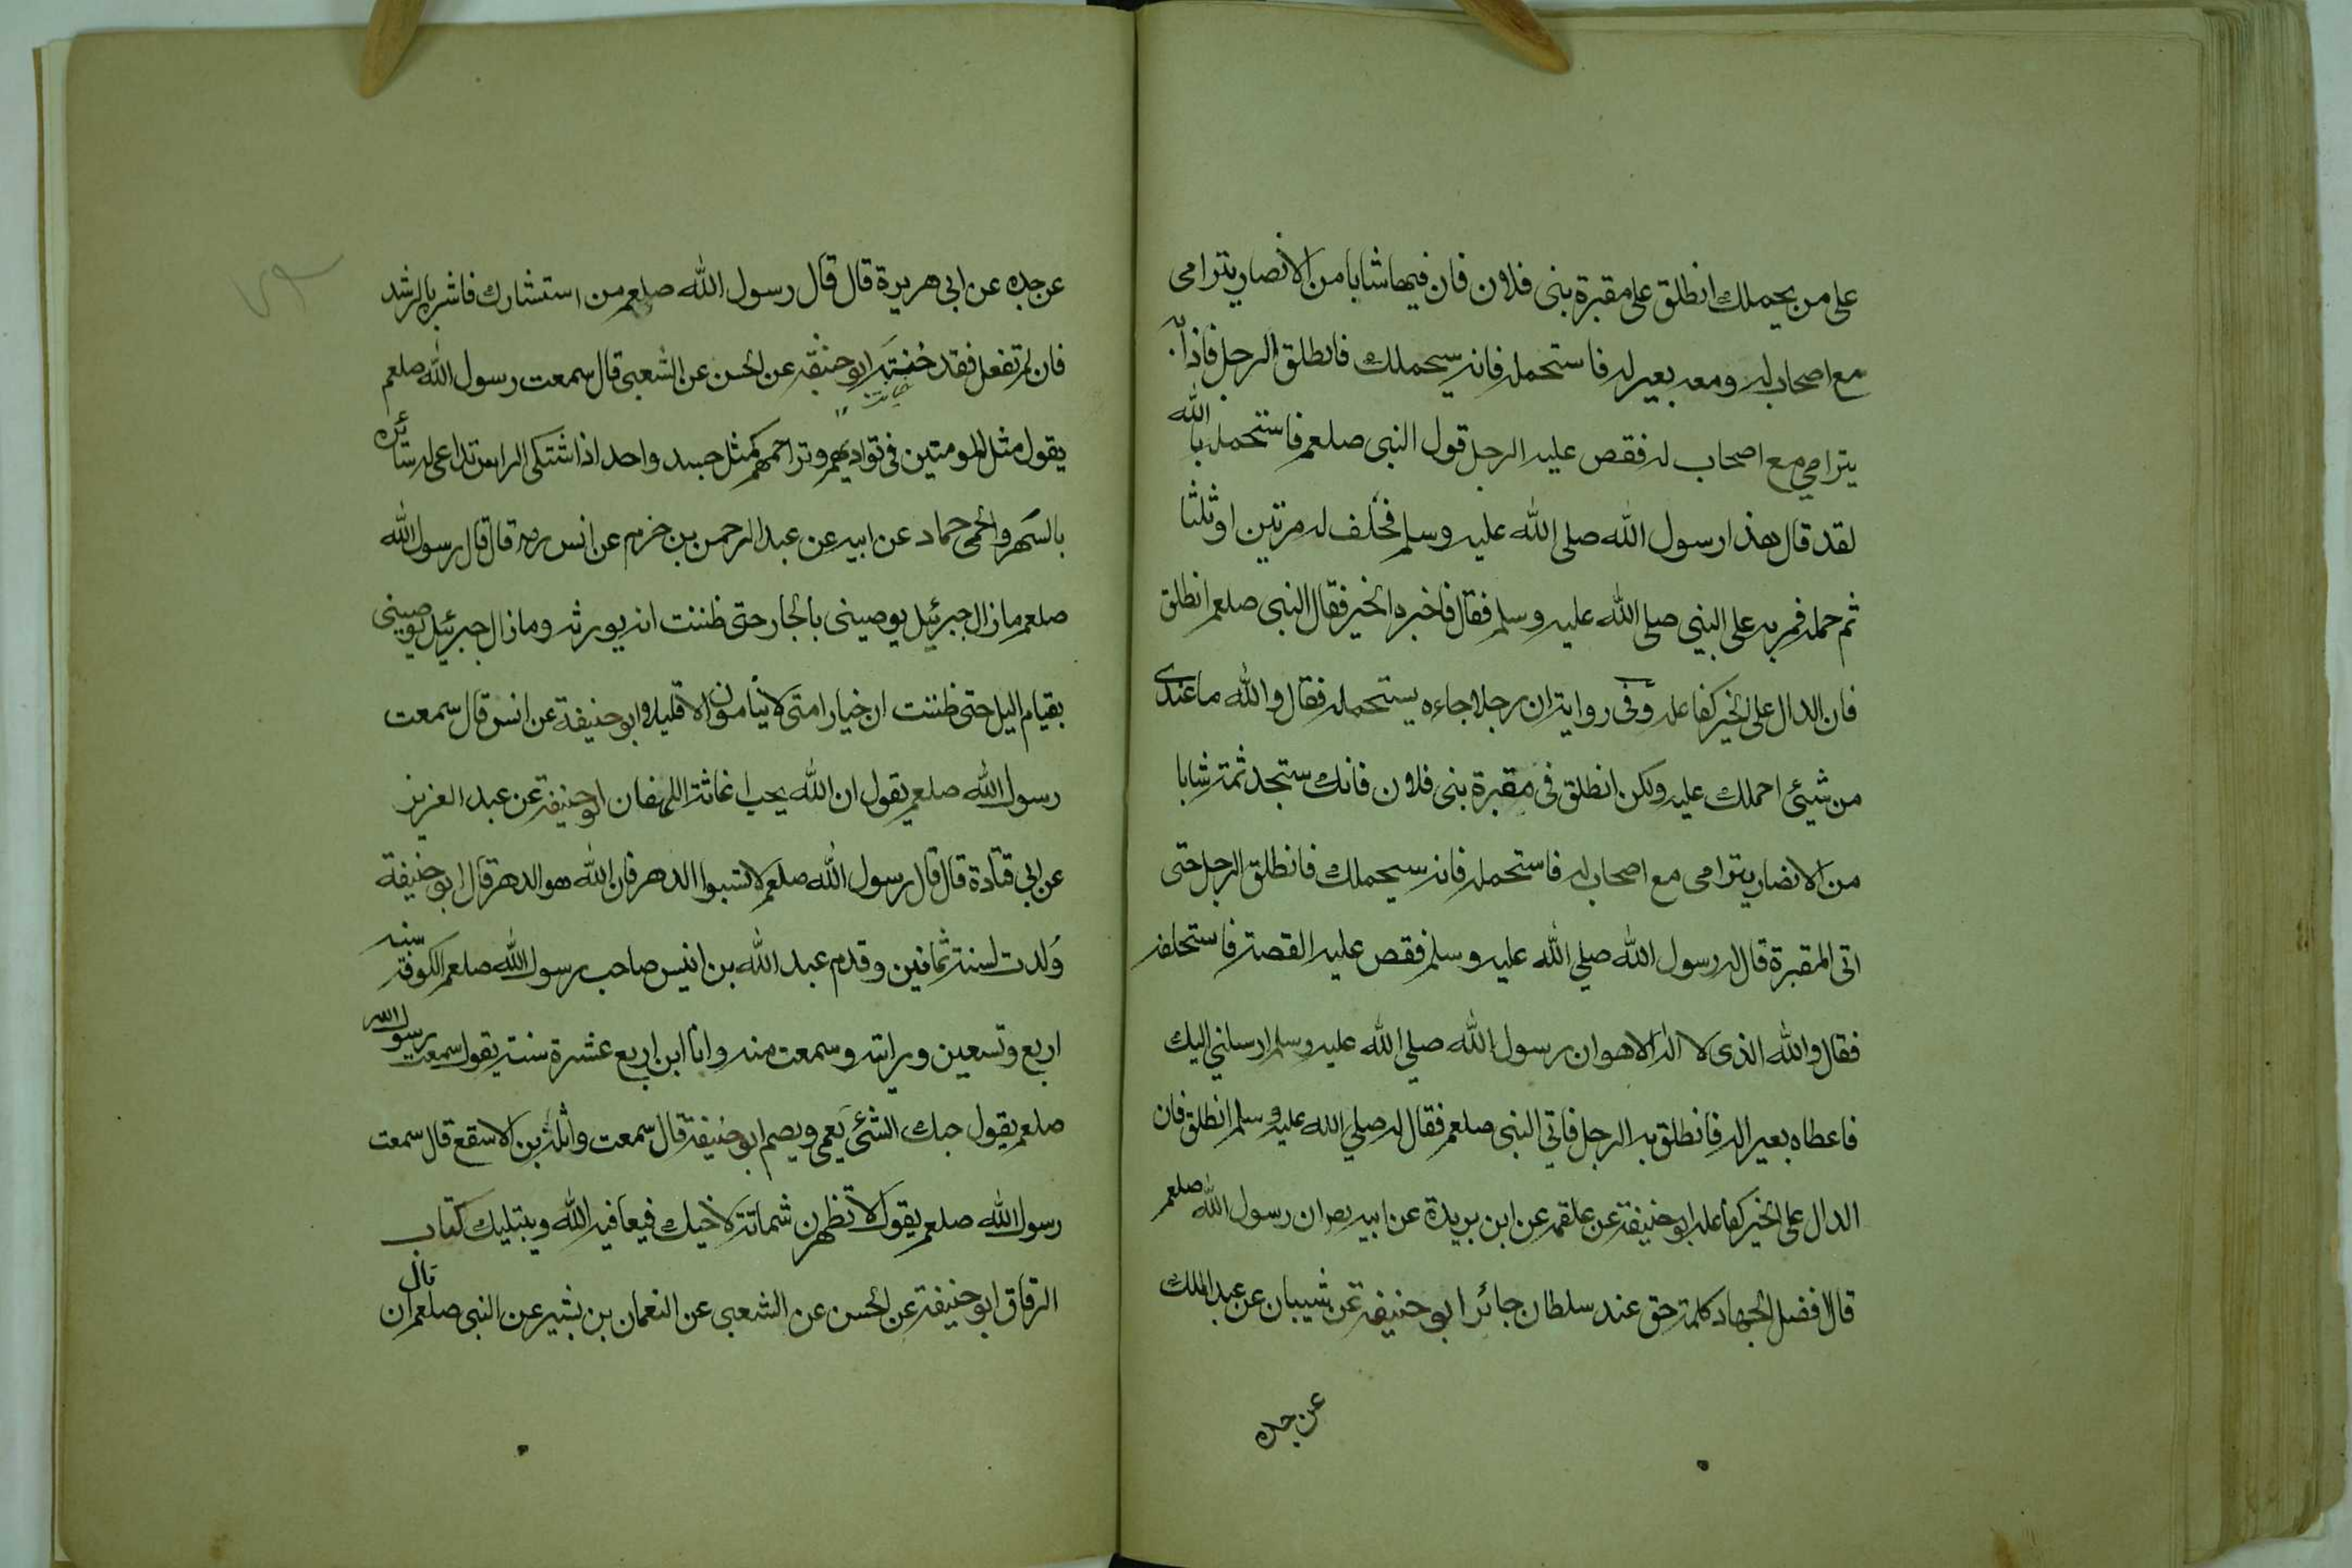 على من يحملك انطلق على مقبرة بنى فلان فان فيها شابا من الانصار يترامى
مع اصحاب له ومعه بعير له فاستحمله فانه سيحملك فانطلق الرجل فاذا به
يترامي مع اصحاب له فقص عليه الرجل قول النبى صلعم فاستحمله بالله
لقد قال هذا رسول الله صلى الله عليه وسلم فحلف له مرتين او ثلثا
ثم حمله فمر به على النبي صلى الله عليه وسلم فقال فاخبره الخير فقال النبى صلعم انطلق
فان الدال على الخير كفاعله وفى رواية ان رجلا جاءه يستحمله فقال والله ما عندى
من شيئ احملك عليه ولكن انطلق فى مقبرة بنى فلان فانك ستجد ثمة شابا
من الانصار يترامى مع اصحاب له فاستحمله فانه سيحملك فانطلق الرجل حتى
اتى المقبرة قال له رسول الله صلي الله عليه وسلم فقص عليه القصة فاستحلفه
فقال والله الذى لا اله الا هو ان رسول الله صلي الله عليه وسلم ارسلني اليك
فاعطاه بعيرا له فانطلق به الرجل فاتي النبى صلعم فقال له صلي الله عليه وسلم انطلق فان
الدال على الخير كفاعله ابو حنيفة عن علقمه عن ابن بريدة عن ابيه ان رسول الله صلعم
قال افضل الجهاد كلمة حق عند سلطان جائر ابو حنيفة عن شيبان عن عبد الملك
عن جده
عن جده عن ابى هريرة قال قال رسول الله صلعم من استشارك فاشر بالرشد
فان لم تفعل فقد خنته ابو حنيفة عن الحسن عن الشعبى قال سمعت رسول الله صلعم
يقول مثل المومنين فى توادهم وتراحمهم كمثل جسد واحد اذا اشتكى الراس تداعى له سائره
بالسهر والحمى حماد عن ابيه عن عبد الرحمن بن خزم عن انس رض قال قال رسول الله
صلعم ما زال جبرئيل يوصينى بالجار حتى ظننت انه يورثه وما زال جبرئيل يوصينى
بقيام اليل حتى ظننت ان خيار امتى لا ينامون الا قليلا ابو حنيفة عن انس قال سمعت
رسول الله صلعم يقول ان الله يحب اغاثة اللهفان ابو حنيفة عن عبد العزيز
عن ابي قتادة قال قال رسول الله صلعم لا تسبوا الدهر فان الله هو الدهر قال ابو حنيفة
ولدت لسنة ثمانين وقدم عبد الله بن انيس صاحب رسول الله صلعم الكوفة سنه
اربع وتسعين ورايته وسمعت منه وانا ابن اربع عشرة سنة يقول سمعت رسول الله
صلعم يقول حبك الشئ يعمى ويصم ابو حنيفة قال سمعت واثلة بن الاسقع قال سمعت
رسول الله صلعم يقول لا تظهرن شماتة لاخيك فيعافيه الله ويبتليك كتاب
الرقاق ابو حنيفة عن الحسن عن الشعبى عن النعمان بن بشير عن النبى صلعم قال ان